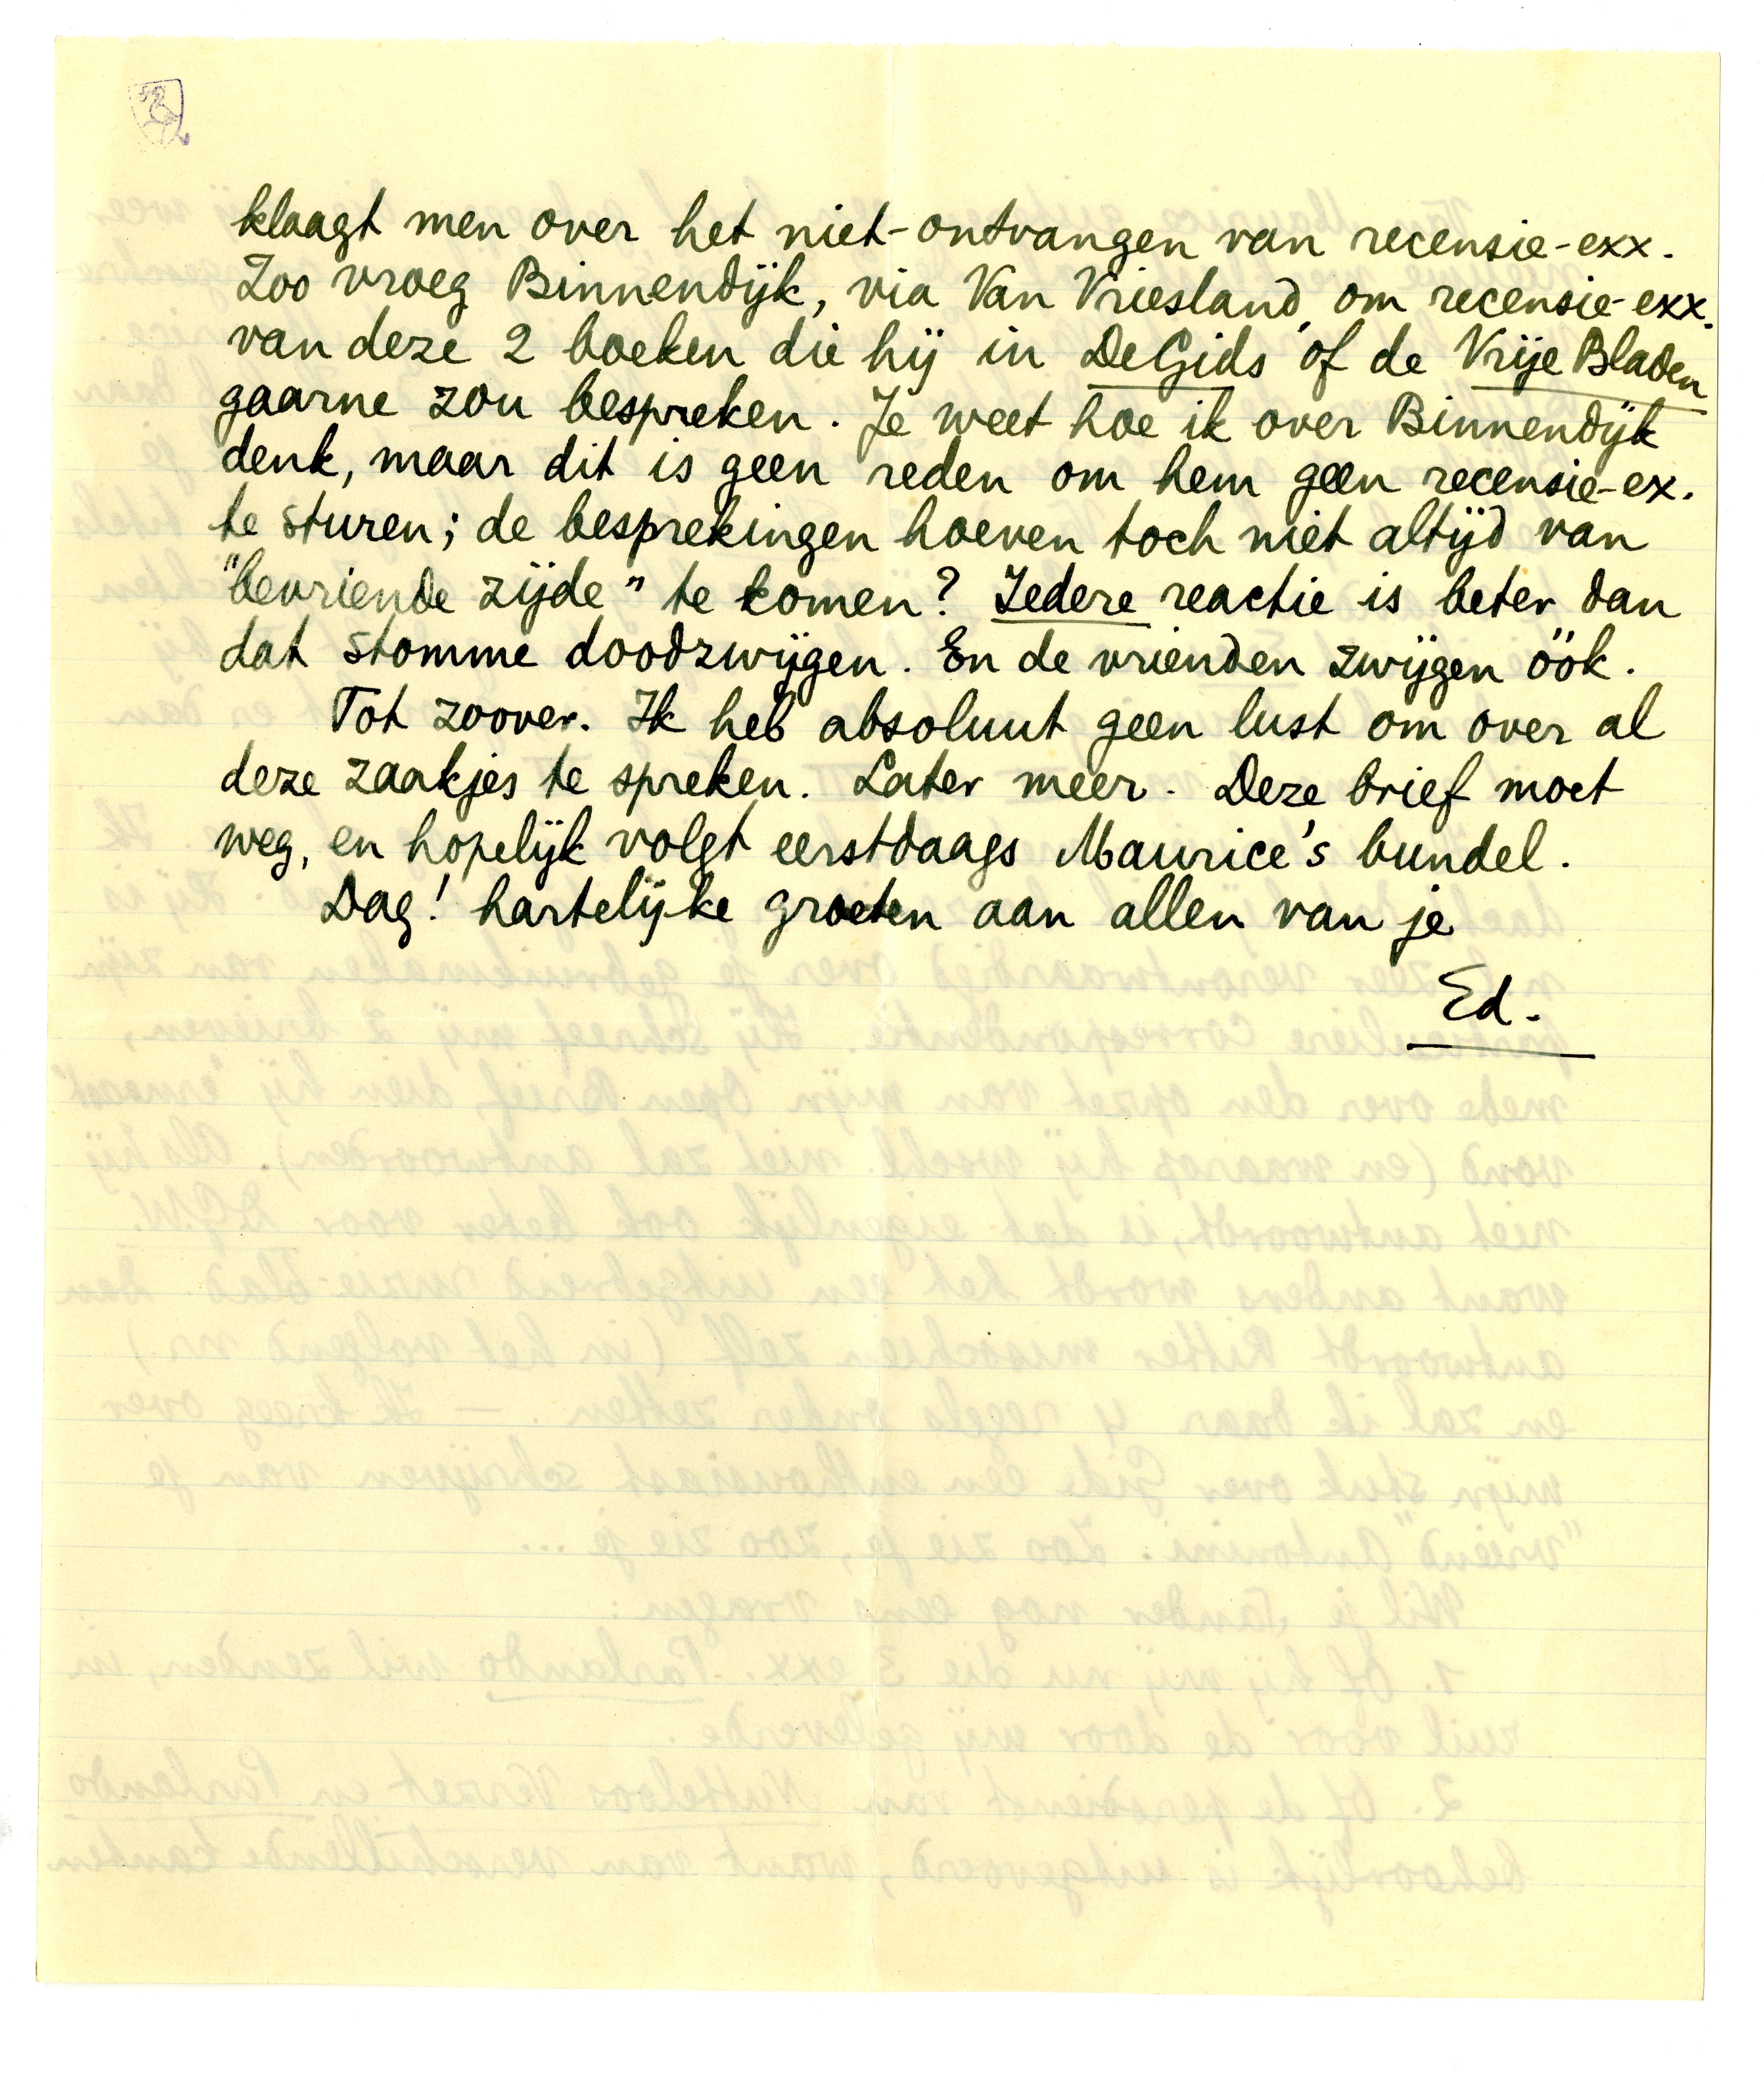 klaagt men over het niet-ontvangen van recensie-exx.
Zoo vroeg Binnendijk, via Van Vriesland, om recensie-exx.
van deze 2 boeken die hij in De Gids of de Vrije Bladen
gaarne zou bespreken. Je weet hoe ik over Binnendijk
denk, maar dit is geen reden om hem geen recensie-ex.
te sturen; de besprekingen hoeven toch niet altijd van
"bevriende zijde" te komen? Iedere reactie is beter dan
dat stomme doodzwijgen. En de vrienden zwijgen óók.
Tot zoover. Ik heb absoluut geen lust om over al
deze zaakjes te spreken. Later meer. Deze brief moet
weg, en hopelijk volgt eerstdaags Maurice's bundel.
Dag! hartelijke groeten aan allen van je
Ed.